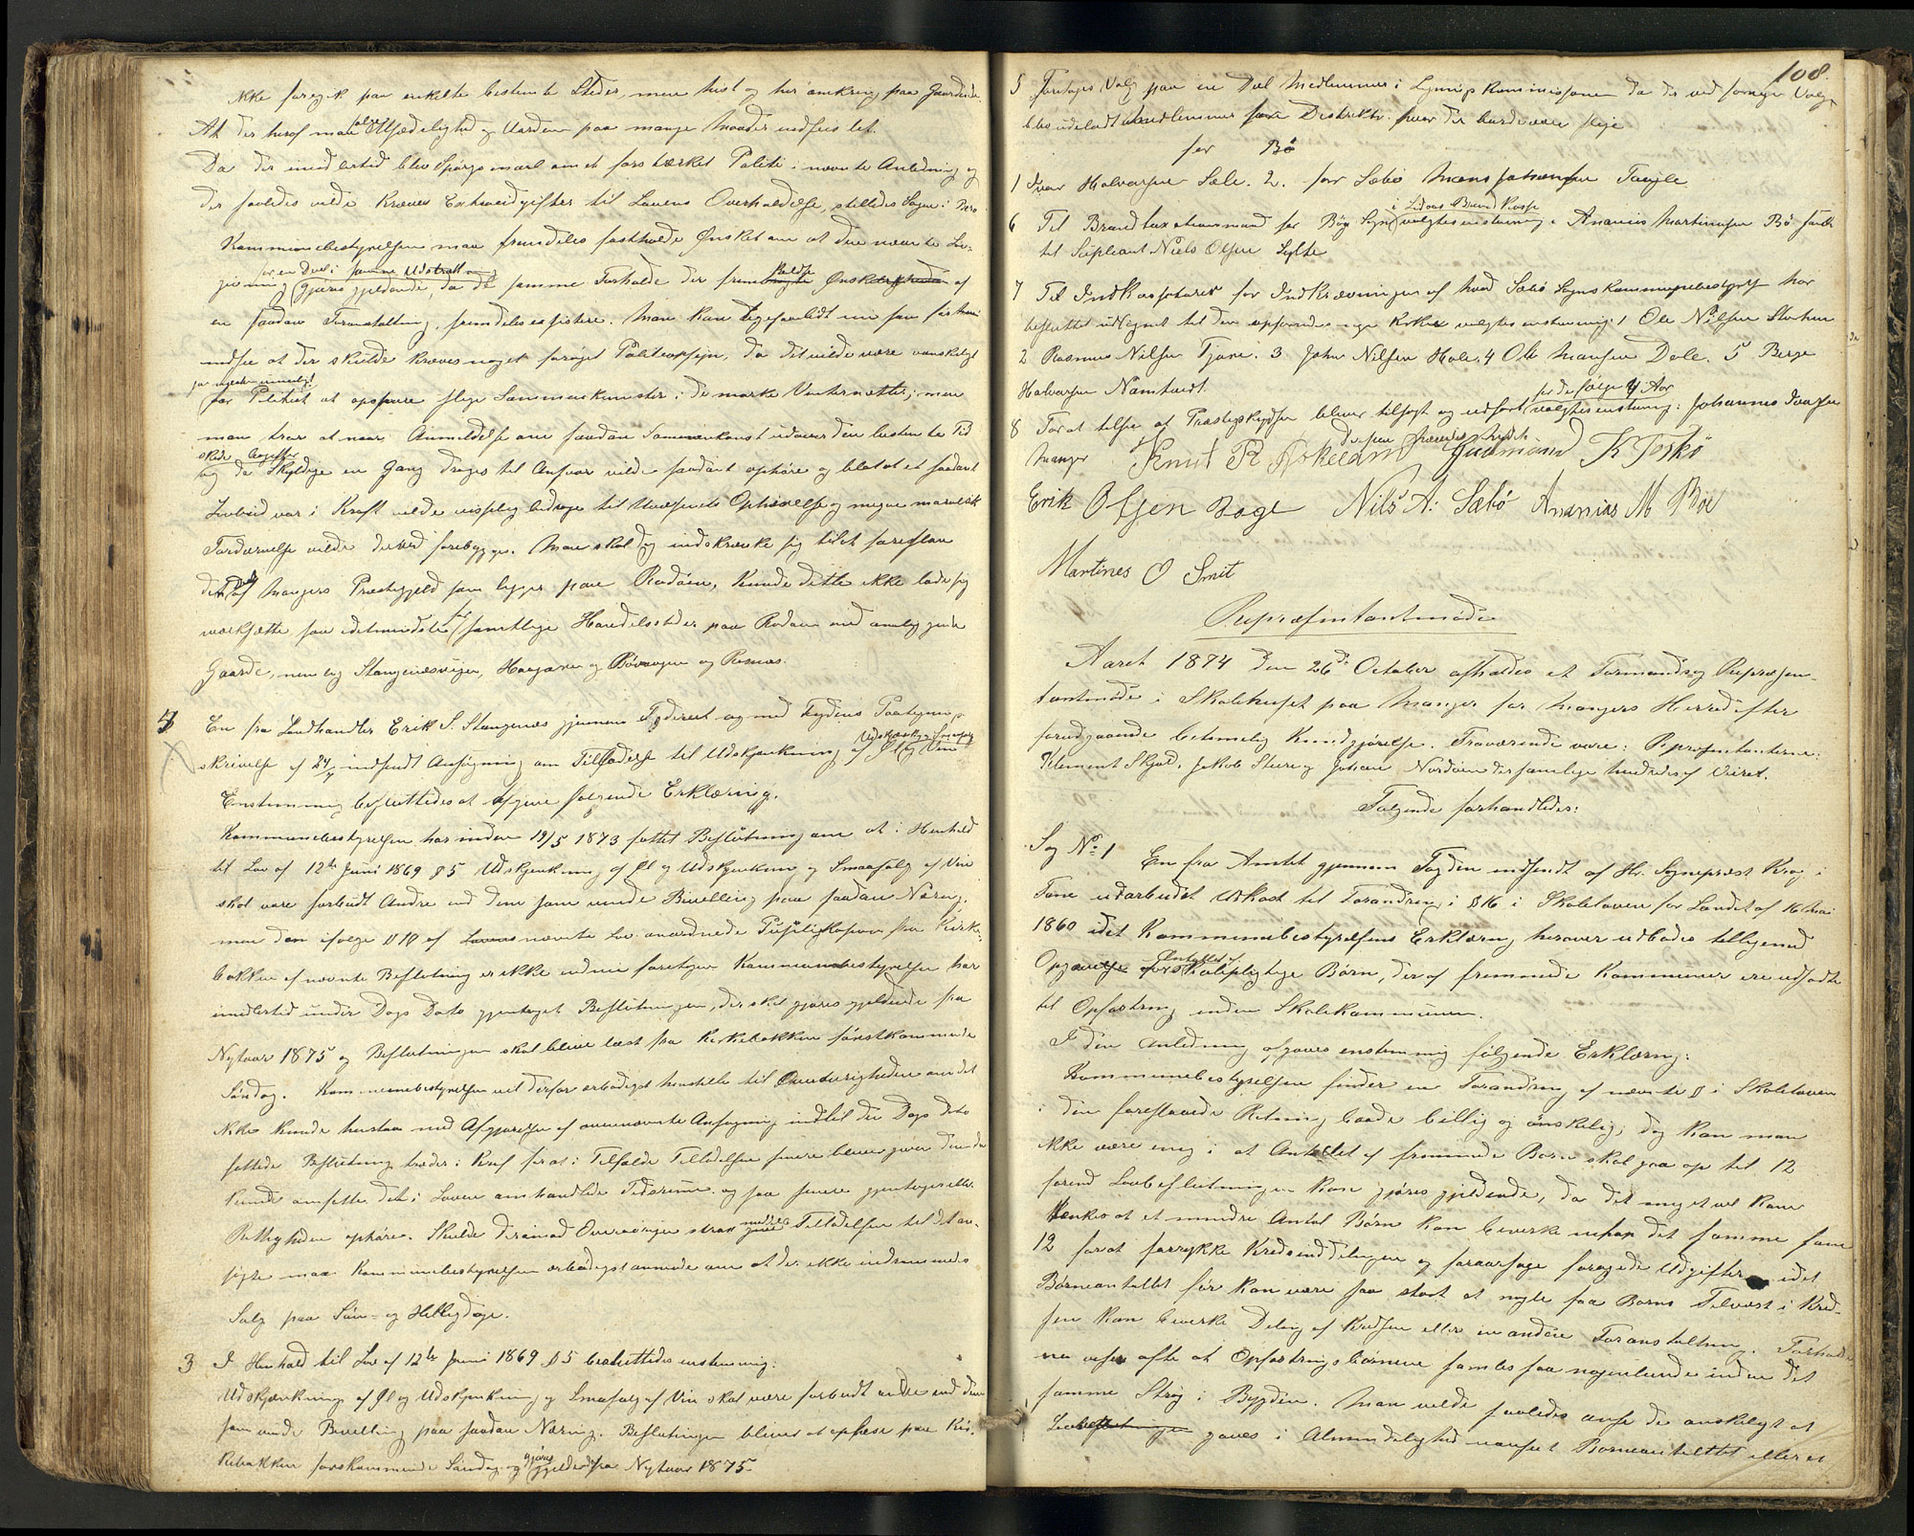 ikke foregik paa enkelte bestemte Steder, men hist og her omkring paa Gaardene.
At der heraf maa Usædelighed og Uorden paa mange Maader indsnige
Da der imidlertid blev Spørgsmaal om et forstærket Politi i nævnte Anledning og
der saaledes vilde kræves Extraudgifter til Lovens Overholdelse, stilledes Sagen i Bero.
Kommunebestyrelsen maa fremdeles fastholde Ønsket om at den nævnte Lov
for en Deel i samme Udstrækning
gjøres gjældende, da de samme Forholde der frem Ønsket af
en saadan Foranstaltning, fremdeles existere. Man kan ligesaalidt nu som før
indsee at der skulde kræves noget forøget Politiopsyn, da det vilde være vanskeligt
for Politiet at opspore slige Sammenkomster i de mørke Vinternætter; men
man tror at naar Anmeldelse om saadan Sammenkomst udover den bestemte Tid
og de Skyldige en Gang drages til Ansvar vilde saadant ophøre og blot at et saadant
Lovbud var i Kraft vilde visselig bidrage til Uvæsenets Ophævelse og megen moralsk
Fordærvelse vilde derved forebygges. Man skal dog indskrænke sig til at foreslaa
den Deel af Mangers Præstegjeld som ligger paa Radøen, kunde dette ikke lade sig
værksætte, saa idetmindste for samtlige Handelssteder paa Radøen med omliggende
Gaarde, nemlig Stangenesvaagen, Haugsøren og Bøvaagen og Risnæs.
En fra Landhandler Erik S. Stangenæs gjennem Fogderiet og med Fogdens Paategnings
skrivelse af 24/ indsendt Ansøgning om Tilladelse til Udskjænkning af Øl og Vin
Enstemmig besluttedes at afgive følgende Erklæring.
Kommunebestyrelsen har under 19/5 1873 fattet Beslutning om at i Henhold
til Lov af 12te Juni 1869 § 5 Udskjænkning af Øl og Udskjænkning og Smaasalg af Vin
skal være forbudt Andre end dem som vinde Bevilling paa saadan Næring.
men den ifølge § 10 af nævnte Lov anordnede fra Kirke-
bakken af nævnte Beslutning er ikke endnu foretagen Kommunebestyrelsen har
imidlertid under Dags Dato gjentaget Beslutningen, der skal gjøres gjeldende fra
Nytaar 1875 og Beslutningen skal blive læst fra Kirkebakken førstkommende
Søndag. Kommunebestyrelsen vil derfor ærbødigst henstille til Øvrigheden om det
ikke kunde henstaa med Afgjørelsen af ovennævnte Ansøgning indtil den Dags Dato
fattede Beslutning træder i Kraf for at i Tilfælde Tilladelsen senere bliver given den da
kunde ansætte det i Loven omhandlede Tidsrum og saa senere gjentages eller
Rettigheden ophøre. Skulde derimod Øvrigheden strax meddele Tilladelsen til det an-
søgte maa Kommunebestyrelsen ærbødigst anmode om at der ikke indrømmedes
Salg paa Søn- og Helligdage.
3 I Henhold til Lov af 12te Juni 1869 § 5 besluttedes enstemmig:
Udskjænkning af Øl og Udskjænkning og Smaasalg af Vin skal være forbudt andre end dem
som vinde Bevilling paa saadan Næring. Beslutningen bliver at oplæse paa Kir-
kebakken førstkommende Søndag og gjøres gjeldende fra Nytaar 1875.
108.
5 Foretages Valg paa en Deel Medlemmer i Ligningskommissionen da der ved forrige Valg
blev udeladt Medlemmer for Distrikter hvor der burde være slige
for Bø
1 Ivar Halvorsen Sæle. 2. for Sæbø Mons Johannesen Taugle
6 Til Brandtaxationsmand for Bøg Sogn i Ledores Brand Kasse valgtes enstemmig Ananias Martinusen Bø samt
til Supleant Niels Olsen Sylte
7 Til Indkassatorer for Indkrævningen af hvad Sæbø Sogns kommunebestyrelse har
besluttet udlignet til den opførende nye Kirke valgtes enstemmig: 1 Ole Nilsen
2 Rasmus Nilsen Tjore. 3 John Nilsen Hole. 4 Ole Monsen Dale. 5 Børge
Halvorsen Namtvedt
8 For at tilse at Præsteskydsen bliver tilsagt og udført for de følge 4 Aar valgtes enstemmig: Johannes Ivarsen
Manger Knut R Askeland Gudmund K Toskø
Erik Olsen Boge Nils A: Sæbø Ananias M Bøe
Martines O Smit
Repræsentantmøde
Aaret 1874 den 26de October afholdtes et Formands og Repræsen-
tantmøde i Skolehuset paa Manger for Mangers Herred efter
forudgaaende betimelig Kundgjørelse. Fraværende vare: Repræsentanterne:
Klement Skjold, Jakob Sture og Johan Nordøen der samtlige hindredes af Veiret.
Følgende forhandledes:
Sag No 1 En fra Amtet gjennem Fogden indsendt af Hr. Sogneprest Krog i
Fane udarbeidet Udkast til Forandring i § 16 i Skoleloven for Landet af 16 Mai
1860 idet Kommunebestyrelsens Erklæring herover udbades tilligemed
Opgavelse Antallet af Skolepligtige Børn, der af fremmede Kommuner ere udsatte
til Opfostring inden Skolekommunen.
I den Anledning afgaves enstemmig følgende Erklæring:
Kommunebestyrelsen finder en Forandring af nævnte § i Skoleloven
i den foreslaaede Retning baade billig og ønskelig; dog kan man
ikke være enig i at Antallet af fremmede Børn skal gaa op til 12
forend Lovbeslutningen kan gjøres gjeldende, da det meget vel kan
tænkes at et mindre Antal Børn kan bevirke netop det samme som
12 for at forrykke Kredsinddelingen og foraarsage forøgede Udgifter idet
Børneantallet før kan være saa stort at nogle faa Børns Tilvæxt i Kred-
sen kan bevirke Deling af Kredsen eller en anden Foranstaltning. Forholde
ne vise ofte at Opfostringsbørnene samles saa nogenlunde inden det
samme Strøg i Bygden. Man vilde saaledes anse det ønskeligt at
Lovbeslutningen gaves i Almindelighed uanseet Børneantallet eller at